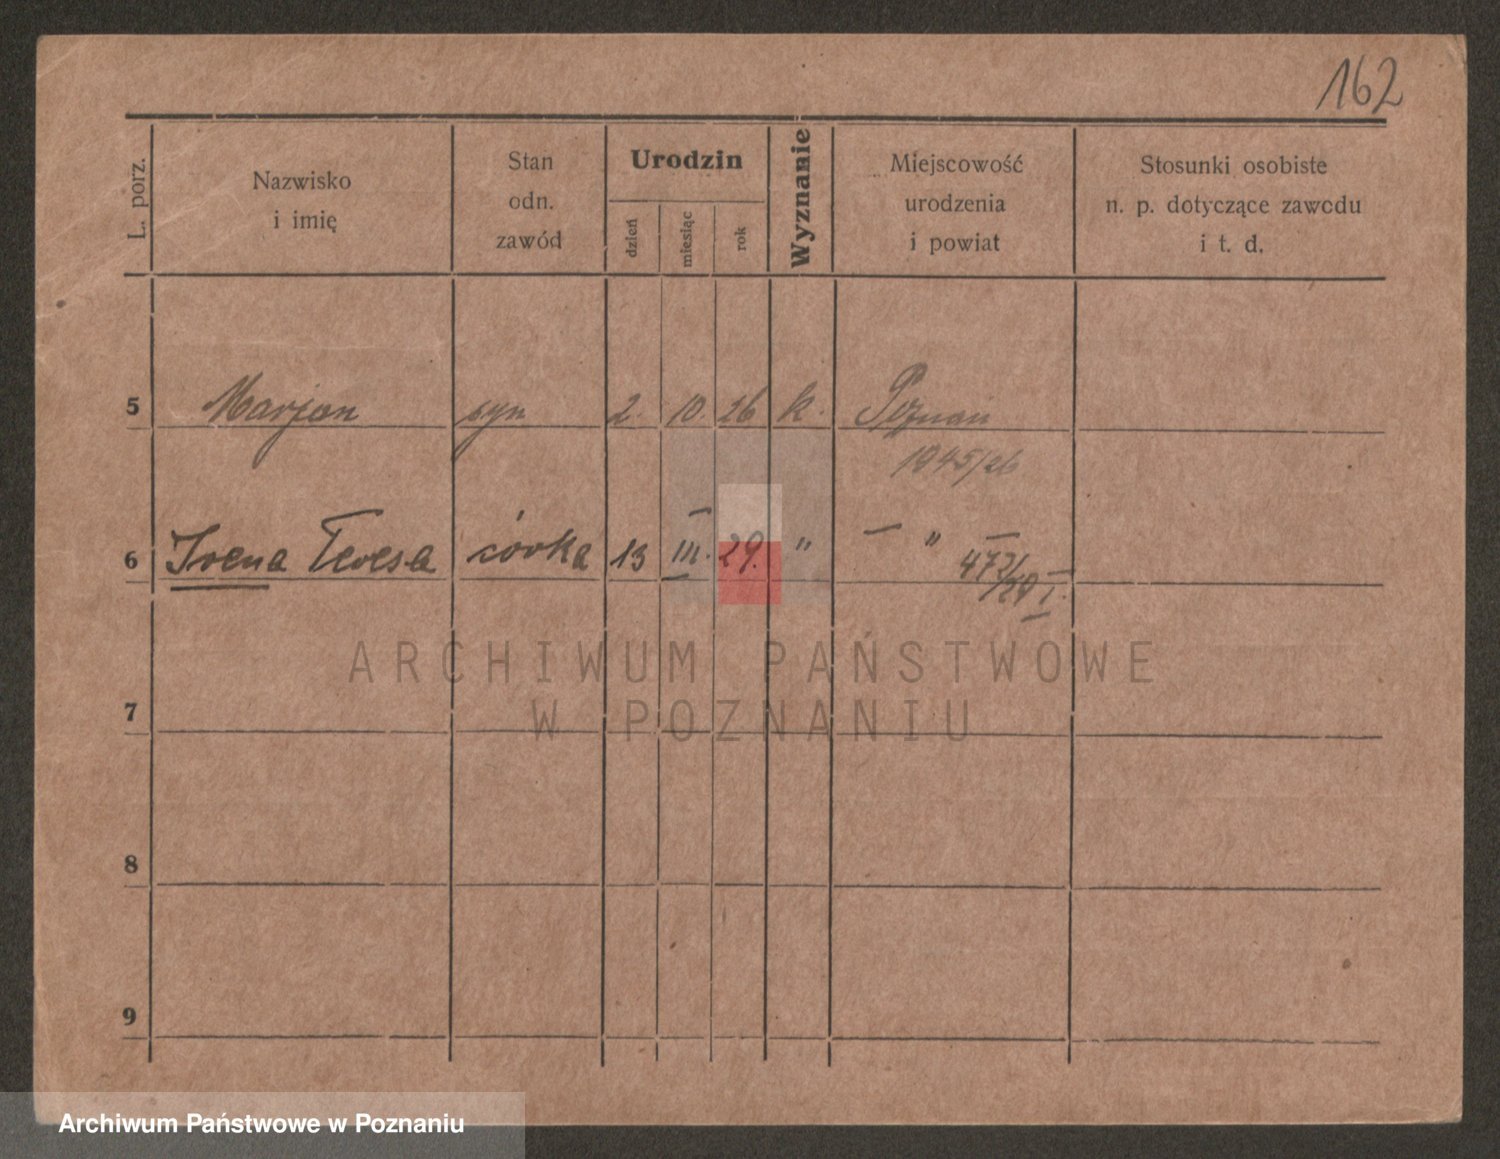 162
L. porz.
Nazwisko
i imię
Stan
odn.
zawód
Urodzin
dzień
miesiąc
rok
Wyznanie
Miejscowość
urodzenia
i powiat
Stosunki osobiste
n. p. dotyczące zawodu
i t. d.
5 Marjan syn 2. 10. 26 k. Poznań
1945/26
6 Irena Teresa córka 13 III. 29. " — " —
472/29 I.
7
8
9
ARCHIWUM PAŃSTWOWE
W POZNANIU
Archiwum Państwowe w Poznaniu